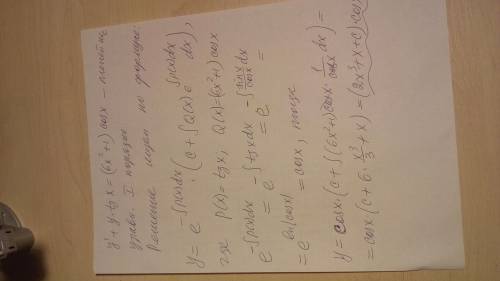 y' + y·tg x = (6x²+1) cos x – линейное
уравн. I порядка
Решение ищем по формуле:
y = e^{-∫p(x)dx} · (c + ∫Q(x) e^{∫p(x)dx} dx),
где p(x) = tg x, Q(x) = (6x²+1) cos x
e^{-∫p(x)dx} = e^{-∫tg x dx} = e^{-∫\frac{sin x}{cos x} dx} =
= e^{ln|cos x|} = cos x, тогда
y = cos x · (c + ∫(6x²+1) cos x · \frac{1}{cos x} dx) =
= cos x · (c + 6 · \frac{x³}{3} + x) = (2x³ + x + c) · cos x